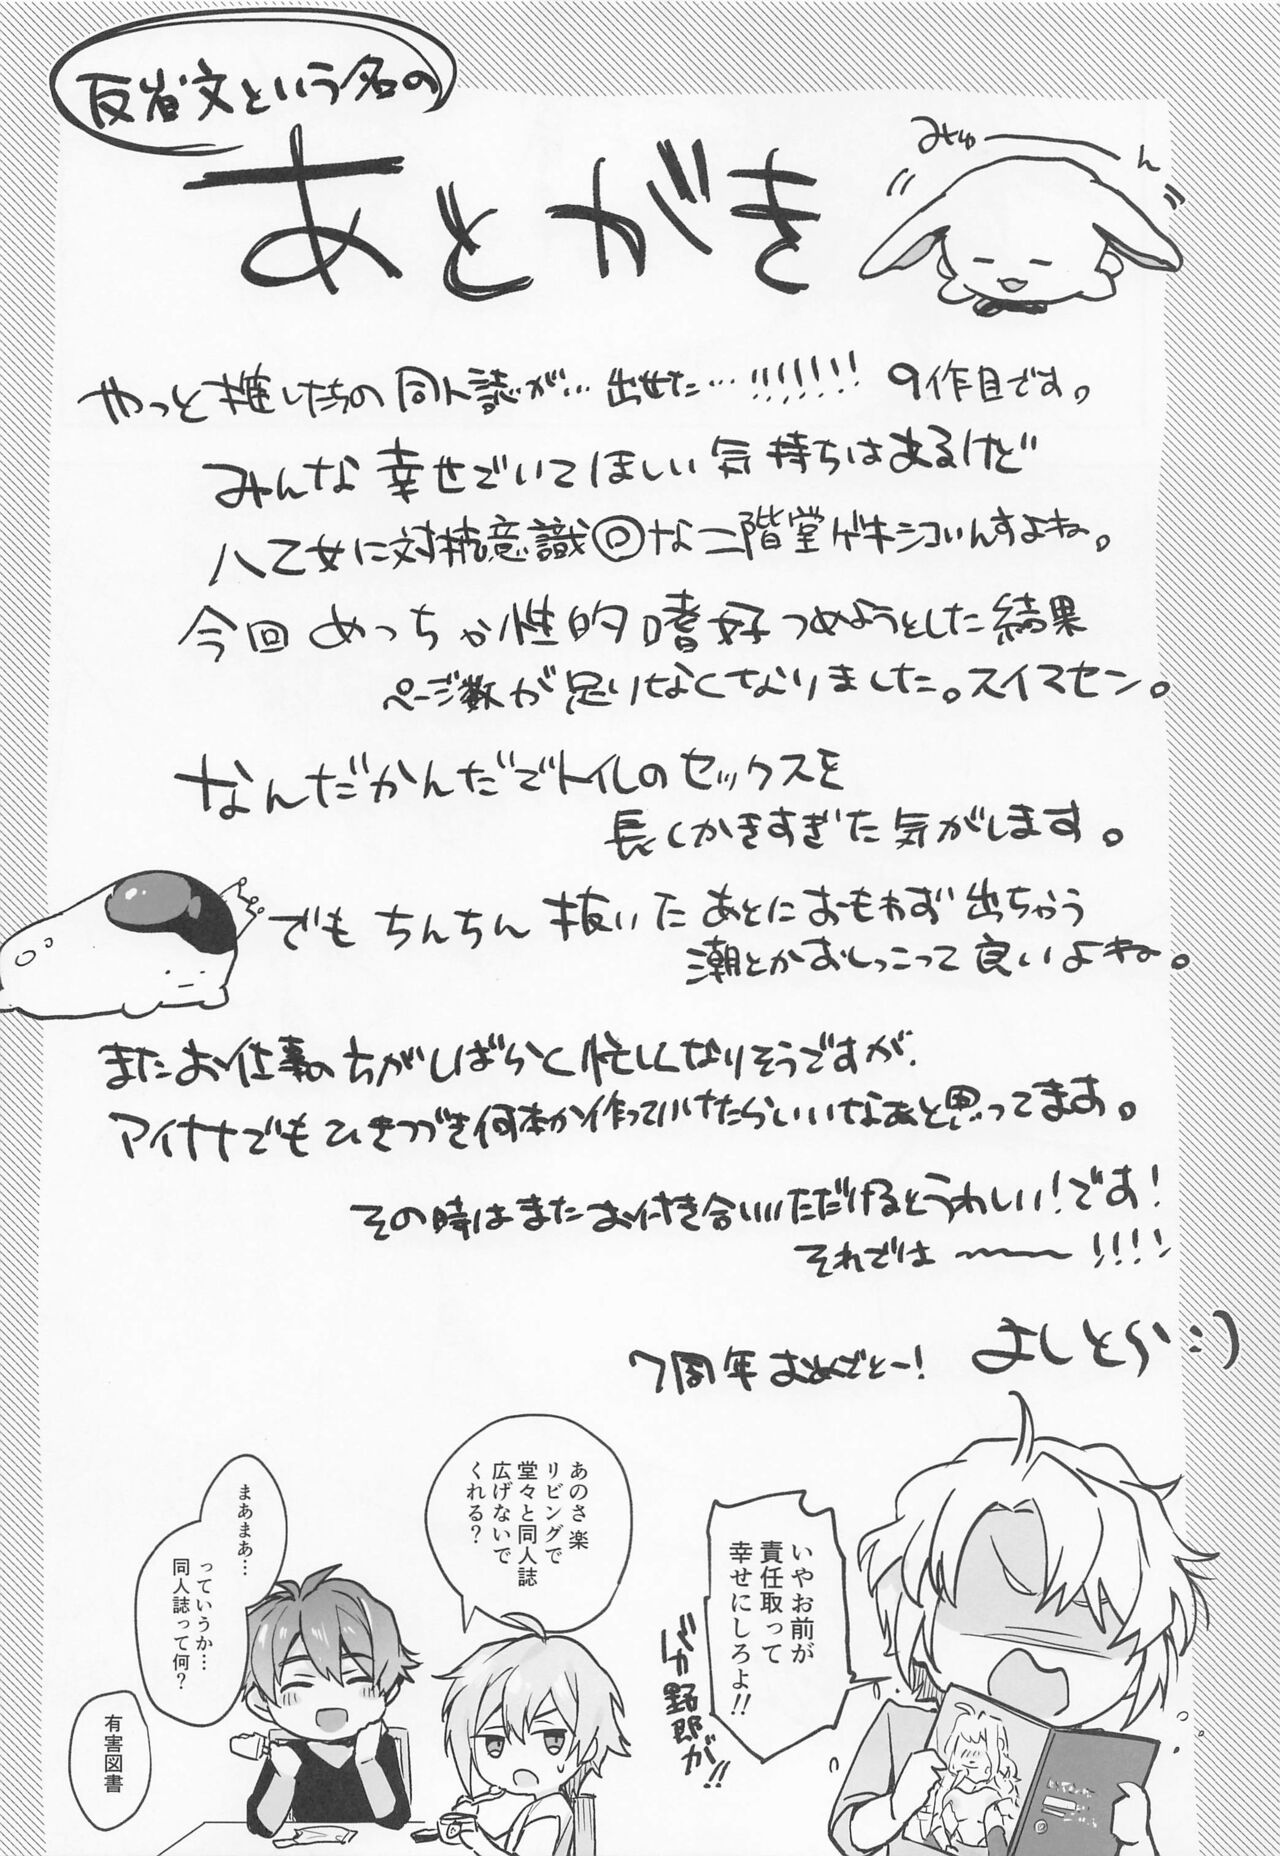 反省文という名の
あとがき
みゅーん
やっと推したちの同人誌が…出せた…!!!!!!! 9作目です。
みんな幸せでいてほしい気持ちはあるけど
八乙女に対抗意識◎な二階堂ゲキシコいんすよね。
今回めっちゃ性的嗜好つめようとした結果
ページ数が足りなくなりました。スイマセン。
なんだかんだでトイレのセックスを
長くかきすぎた気がします。
でもちんちん抜いたあとにおもわず出ちゃう
潮とかおしっこって良いよね。
またお仕事の方がしばらく忙しくなりそうですが、
アイナナでもひきつづき何本か作っていけたらいいなあと思ってます。
その時はまたお付き合いいただけるとうれしい!です!
それでは〜〜!!!!
よしとら:)
7周年おめでとー!
いやお前が
責任取って
幸せにしろよ!!
バカ野郎が!!
あのさ楽
リビングで
堂々と同人誌
広げないで
くれる?
まあまあ…
っていうか…
同人誌って何?
有害図書